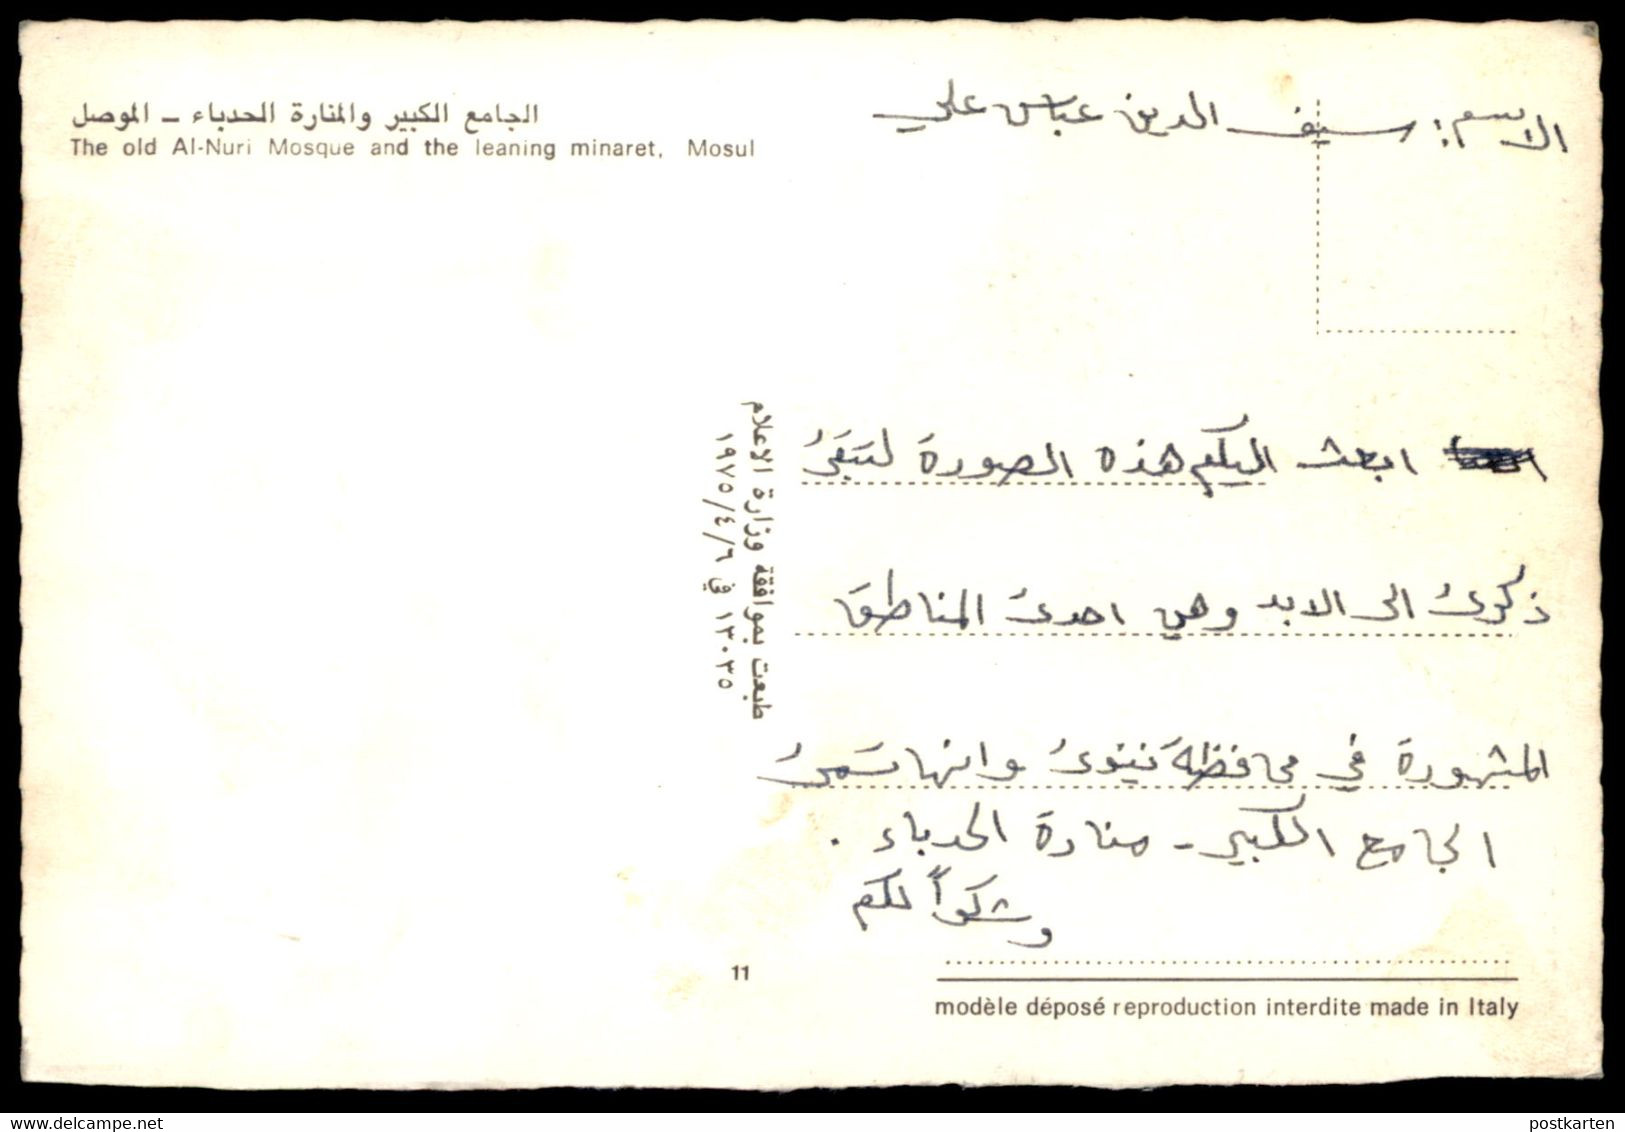 الجامع الكبير والمنارة الحدباء – الموصل
The old Al-Nuri Mosque and the leaning minaret, Mosul
الاسم: سيف الدين عباس علي
ابعث اليكم هذه الصورة لتبقىُ
ذكرىُ الى الابد وهي احدىُ المناطق
المشهورة في محافظة نينوىُ وانها تسمىُ
الجامع الكبير - منارة الحدباء .
وشكراً لكم
طبعت بموافقة وزارة الاعلام
١٣٠٣٥ في ١٩٧٥/٤/٦
11
modèle déposé reproduction interdite made in Italy
delcampe.net
postkarten